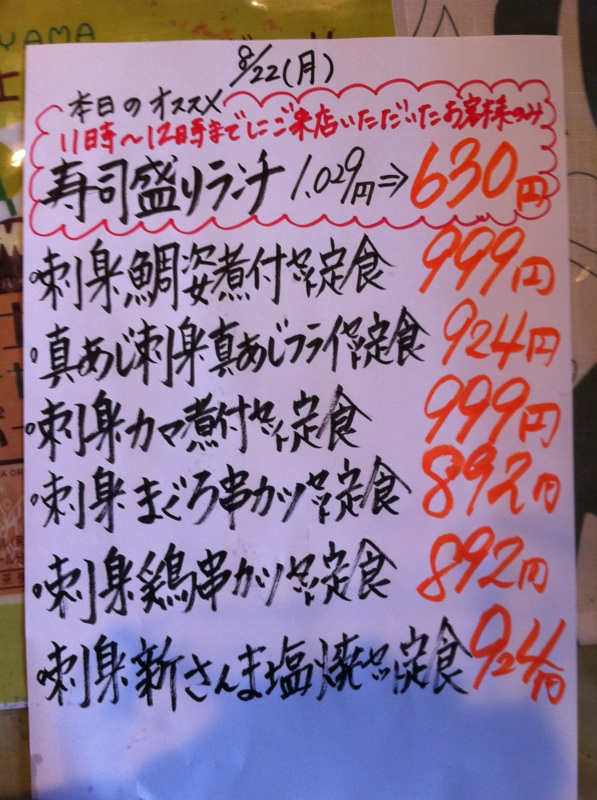 YAMA
8/22(月)
本日のオススメ
11時～12時までにご来店いただいたお客様のみ
寿司盛りランチ 1,029円⇒630円
刺身鯛姿煮付セット定食 999円
真あじ刺身真あじフライセット定食 924円
刺身カマ煮付セット定食 999円
刺身まぐろ串カツセット定食 892円
刺身鶏串カツセット定食 892円
刺身新さんま塩焼セット定食 924円